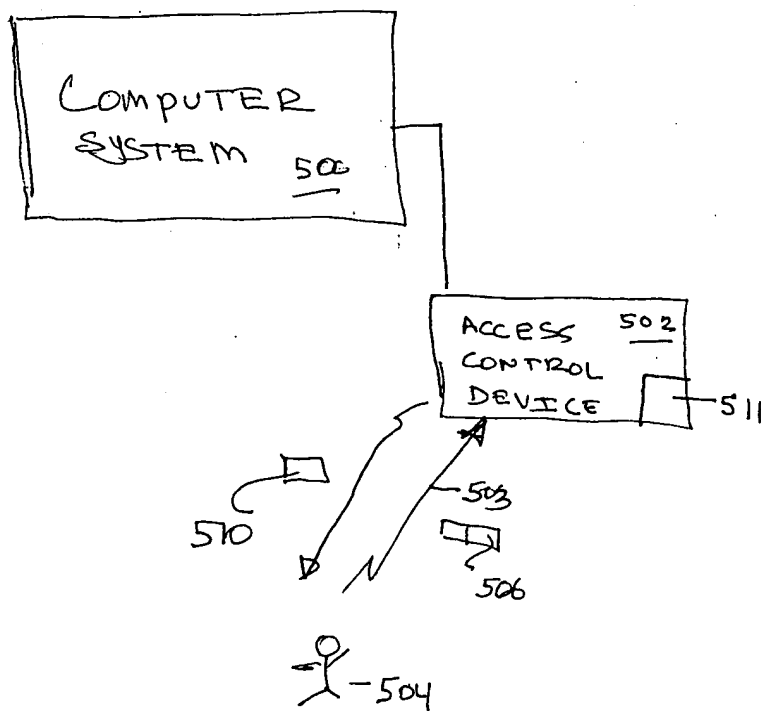 COMPUTER
SYSTEM 500
ACCESS 502
CONTROL
DEVICE
511
503
510
506
504